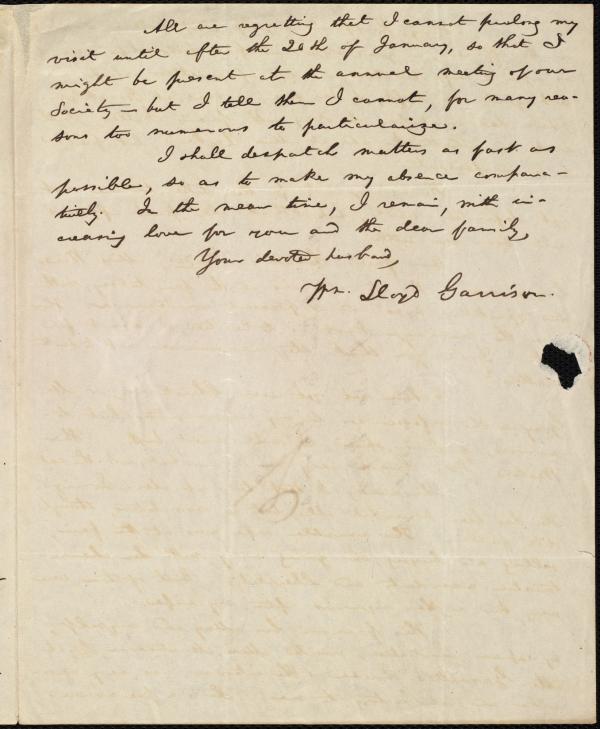 All are regretting that I cannot prolong my
visit until after the 20th of January, so that I
might be present at the annual meeting of our
Society — but I tell them I cannot, for many rea-
sons too numerous to particularize.
I shall despatch matters as fast as
possible, so as to make my absence compara-
tively. In the mean time, I remain, with in-
creasing love for you and the dear family,
Your devoted husband,
Wm. Lloyd Garrison.